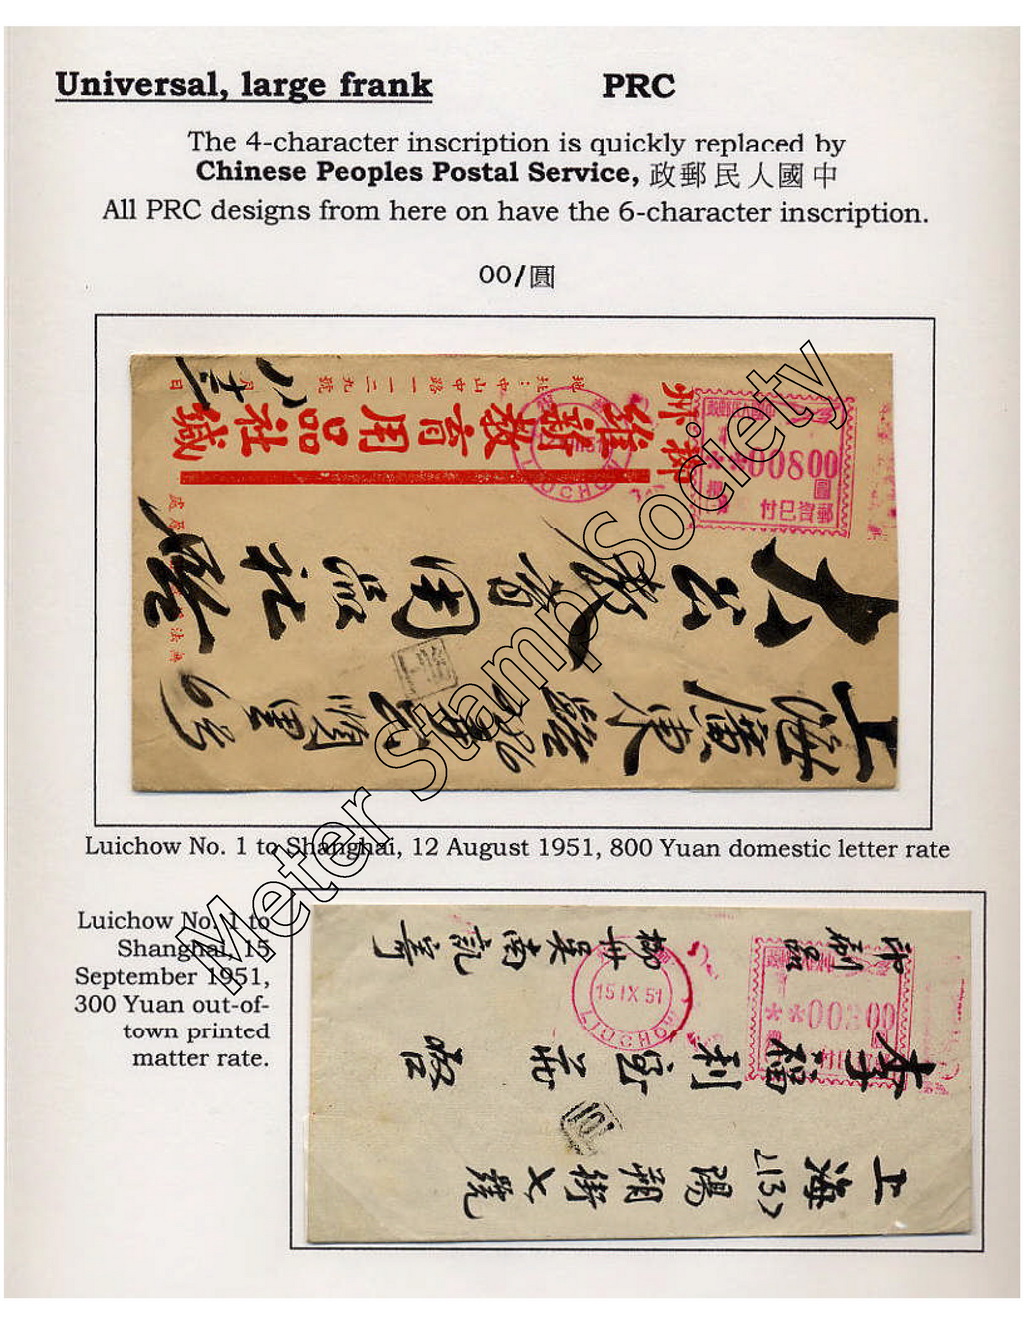 Universal, large frank PRC
The 4-character inscription is quickly replaced by
Chinese Peoples Postal Service, 政郵民人國中
All PRC designs from here on have the 6-character inscription.
00/圓
日 月 號九二一一路中山中:址地
柳州
維新教育用品社緘
LIUCHOW
**00800
圓
付已資郵
大公教育用品社
上海廣東路
上海
Luichow No. 1 to Shanghai, 12 August 1951, 800 Yuan domestic letter rate
Luichow No. 1 to
Shanghai, 15
September 1951,
300 Yuan out-of-
town printed
matter rate.
印刷品
15 IX 51
LIUCHOW
**00300
李福利
上海(13)
陽朔街七號
Meter Stamp Society